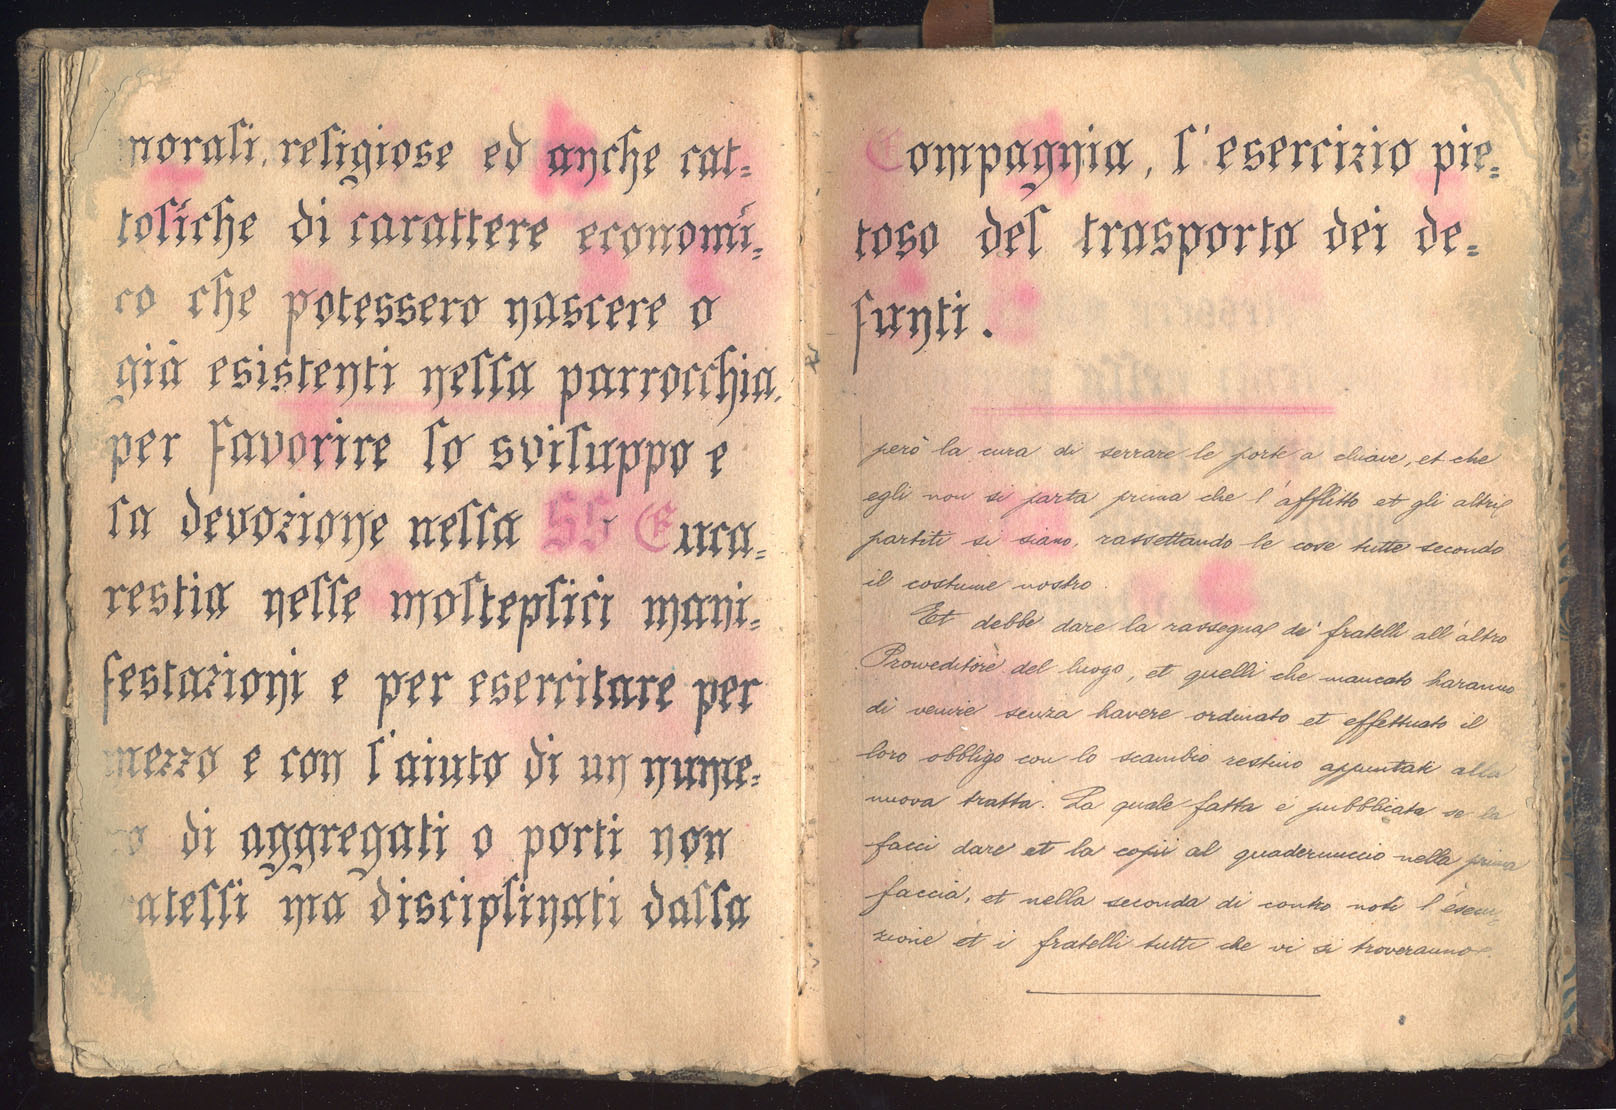 morali, religiose ed anche cat=
toliche di carattere economi=
co che potessero nascere o
già esistenti nella parrocchia,
per favorire lo sviluppo e
la devozione nella SS Euca=
restia nelle molteplici mani=
festazioni e per esercitare per
mezzo e con l'aiuto di un nume=
ro di aggregati o porti non
atelli ma disciplinati dalla
Compagnia, l'esercizio pie=
toso del trasporto dei de=
funti.
però la cura di serrare le porte a chiave, et che
egli non si parta prima che l'afflitto et gli altri
partiti si siano, rassettando le cose tutte secondo
il costume nostro.
Et debbe dare la rassegna de' fratelli all'altro
Proweditore del luogo, et quelli che mancato haranno
di venire senza havere ordinato et effettuato il
loro obbligo con lo scambio restino appuntati alla
nuova tratta. La quale fatta e pubblicata se la
facci dare et la copii al quadernuccio nella prima
faccia, et nella seconda di contro noti l'esen=
zione et i fratelli tutti che vi si troveranno.